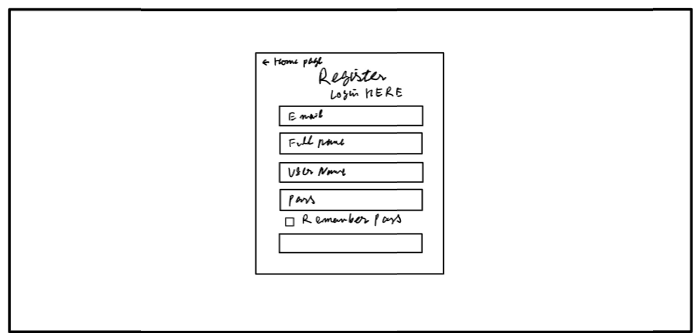 ← Home page
Register
Login HERE
Email
Full name
User Name
Pass
Remember Pass